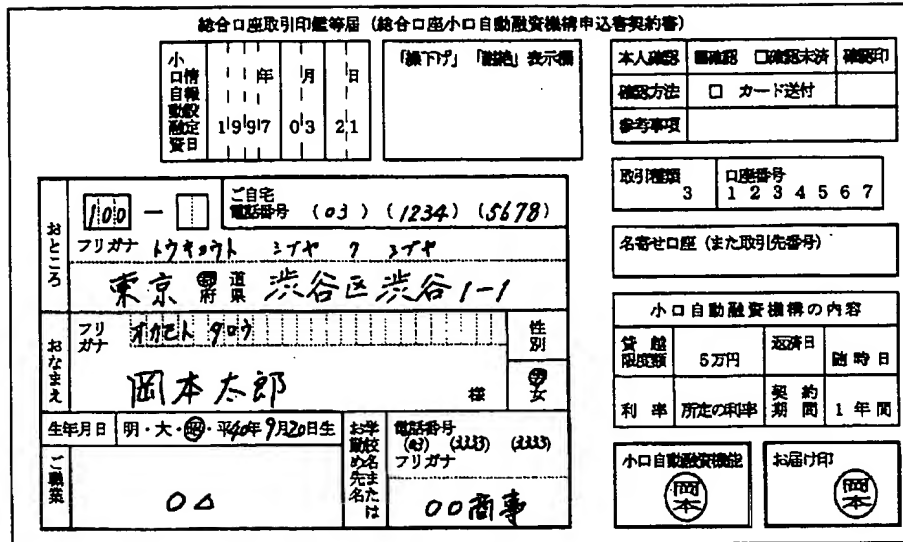 総合口座取引印鑑等届（総合口座小口自動融資機構申込書契約書）
小口自動融資
情報設定日
年 月 日
1997 03 21
「繰下げ」「謝絶」表示欄
本人確認 ■確認 □確認未済 確認印
確認方法 □ カード送付
参考事項
取引種類 3
口座番号 1 2 3 4 5 6 7
名寄せ口座（また取引先番号）
おところ
100 －
ご自宅
電話番号 (03) (1234) (5678)
フリガナ トウキョウト シブヤ ク シブヤ
東京 都 道 府 県 渋谷区渋谷1-1
おなまえ
フリガナ オカモト タロウ
岡本太郎 様
性別
男 女
生年月日 明・大・昭・平40年9月20日生
ご職業
○△
お勤め先名
学校名または
電話番号
(03) (3333) (3333)
フリガナ
○○商事
小口自動融資機構の内容
貸越限度額 5万円 返済日 随時日
利率 所定の利率 契約期間 1年間
小口自動融資機能
岡本
お届け印
岡本